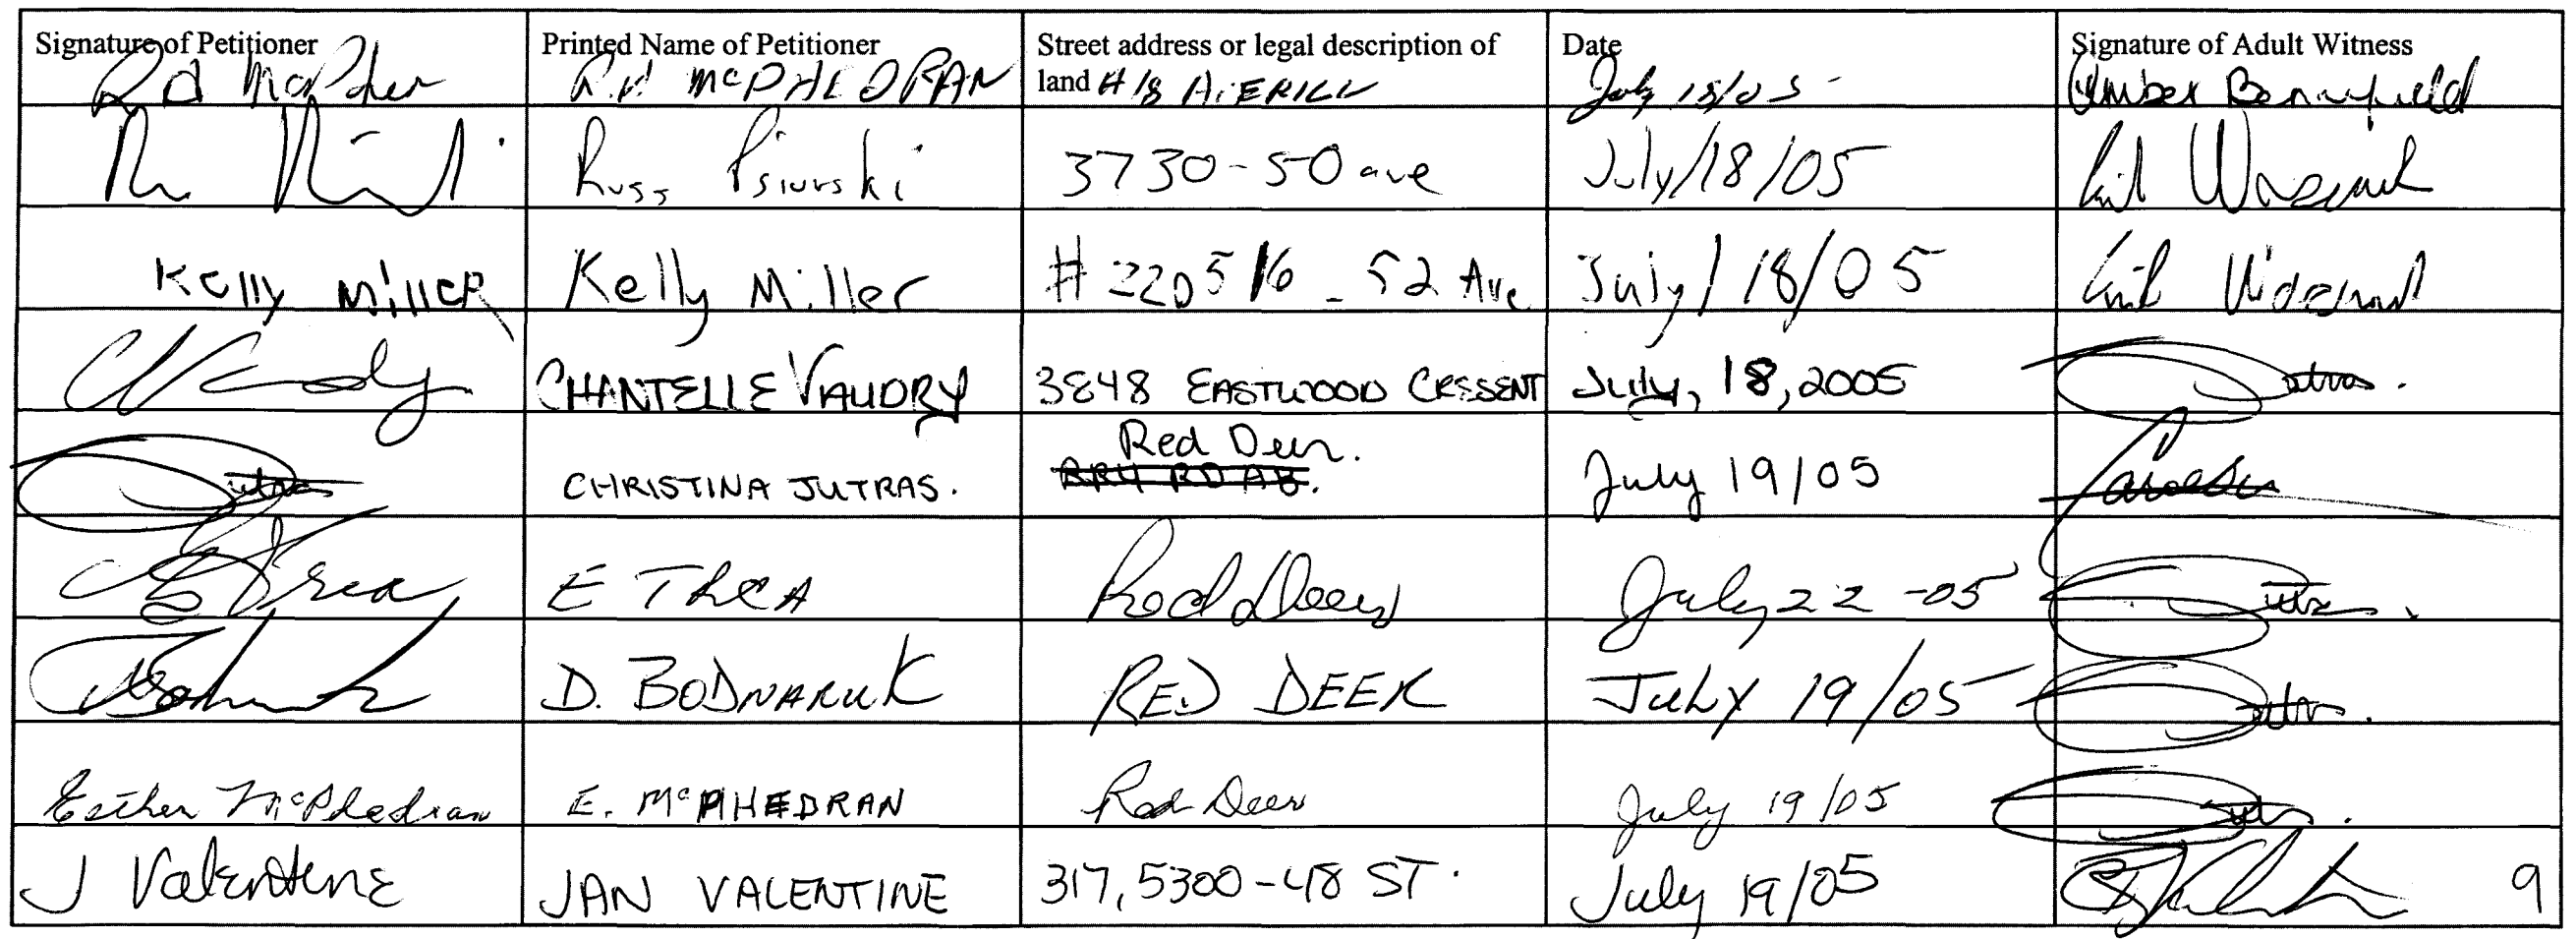 Signature of Petitioner
Printed Name of Petitioner
Street address or legal description of
land # 18 AVERILL
Date
Signature of Adult Witness
R.D. McPHEDRAN
July 18/05
Amber
Russ Psiurski
3730-50 ave
July/18/05
Kelly Miller
Kelly Miller
# 220 5116 - 52 Ave
July/18/05
CHANTELLE VAUDRY
3848 EASTWOOD CRESSENT
July, 18, 2005
Jutras.
Jutras
CHRISTINA JUTRAS.
Red Deer.
RR4 RD AB.
July 19/05
E TREA
Red Deer
July 22-05
Jutras.
D. BODNARUK
RED DEER
JULY 19/05
Jutras.
Esther McPhedran
E. McPHEDRAN
Red Deer
July 19/05
Jutras.
J Valentine
JAN VALENTINE
317, 5300-48 ST.
July 19/05
9